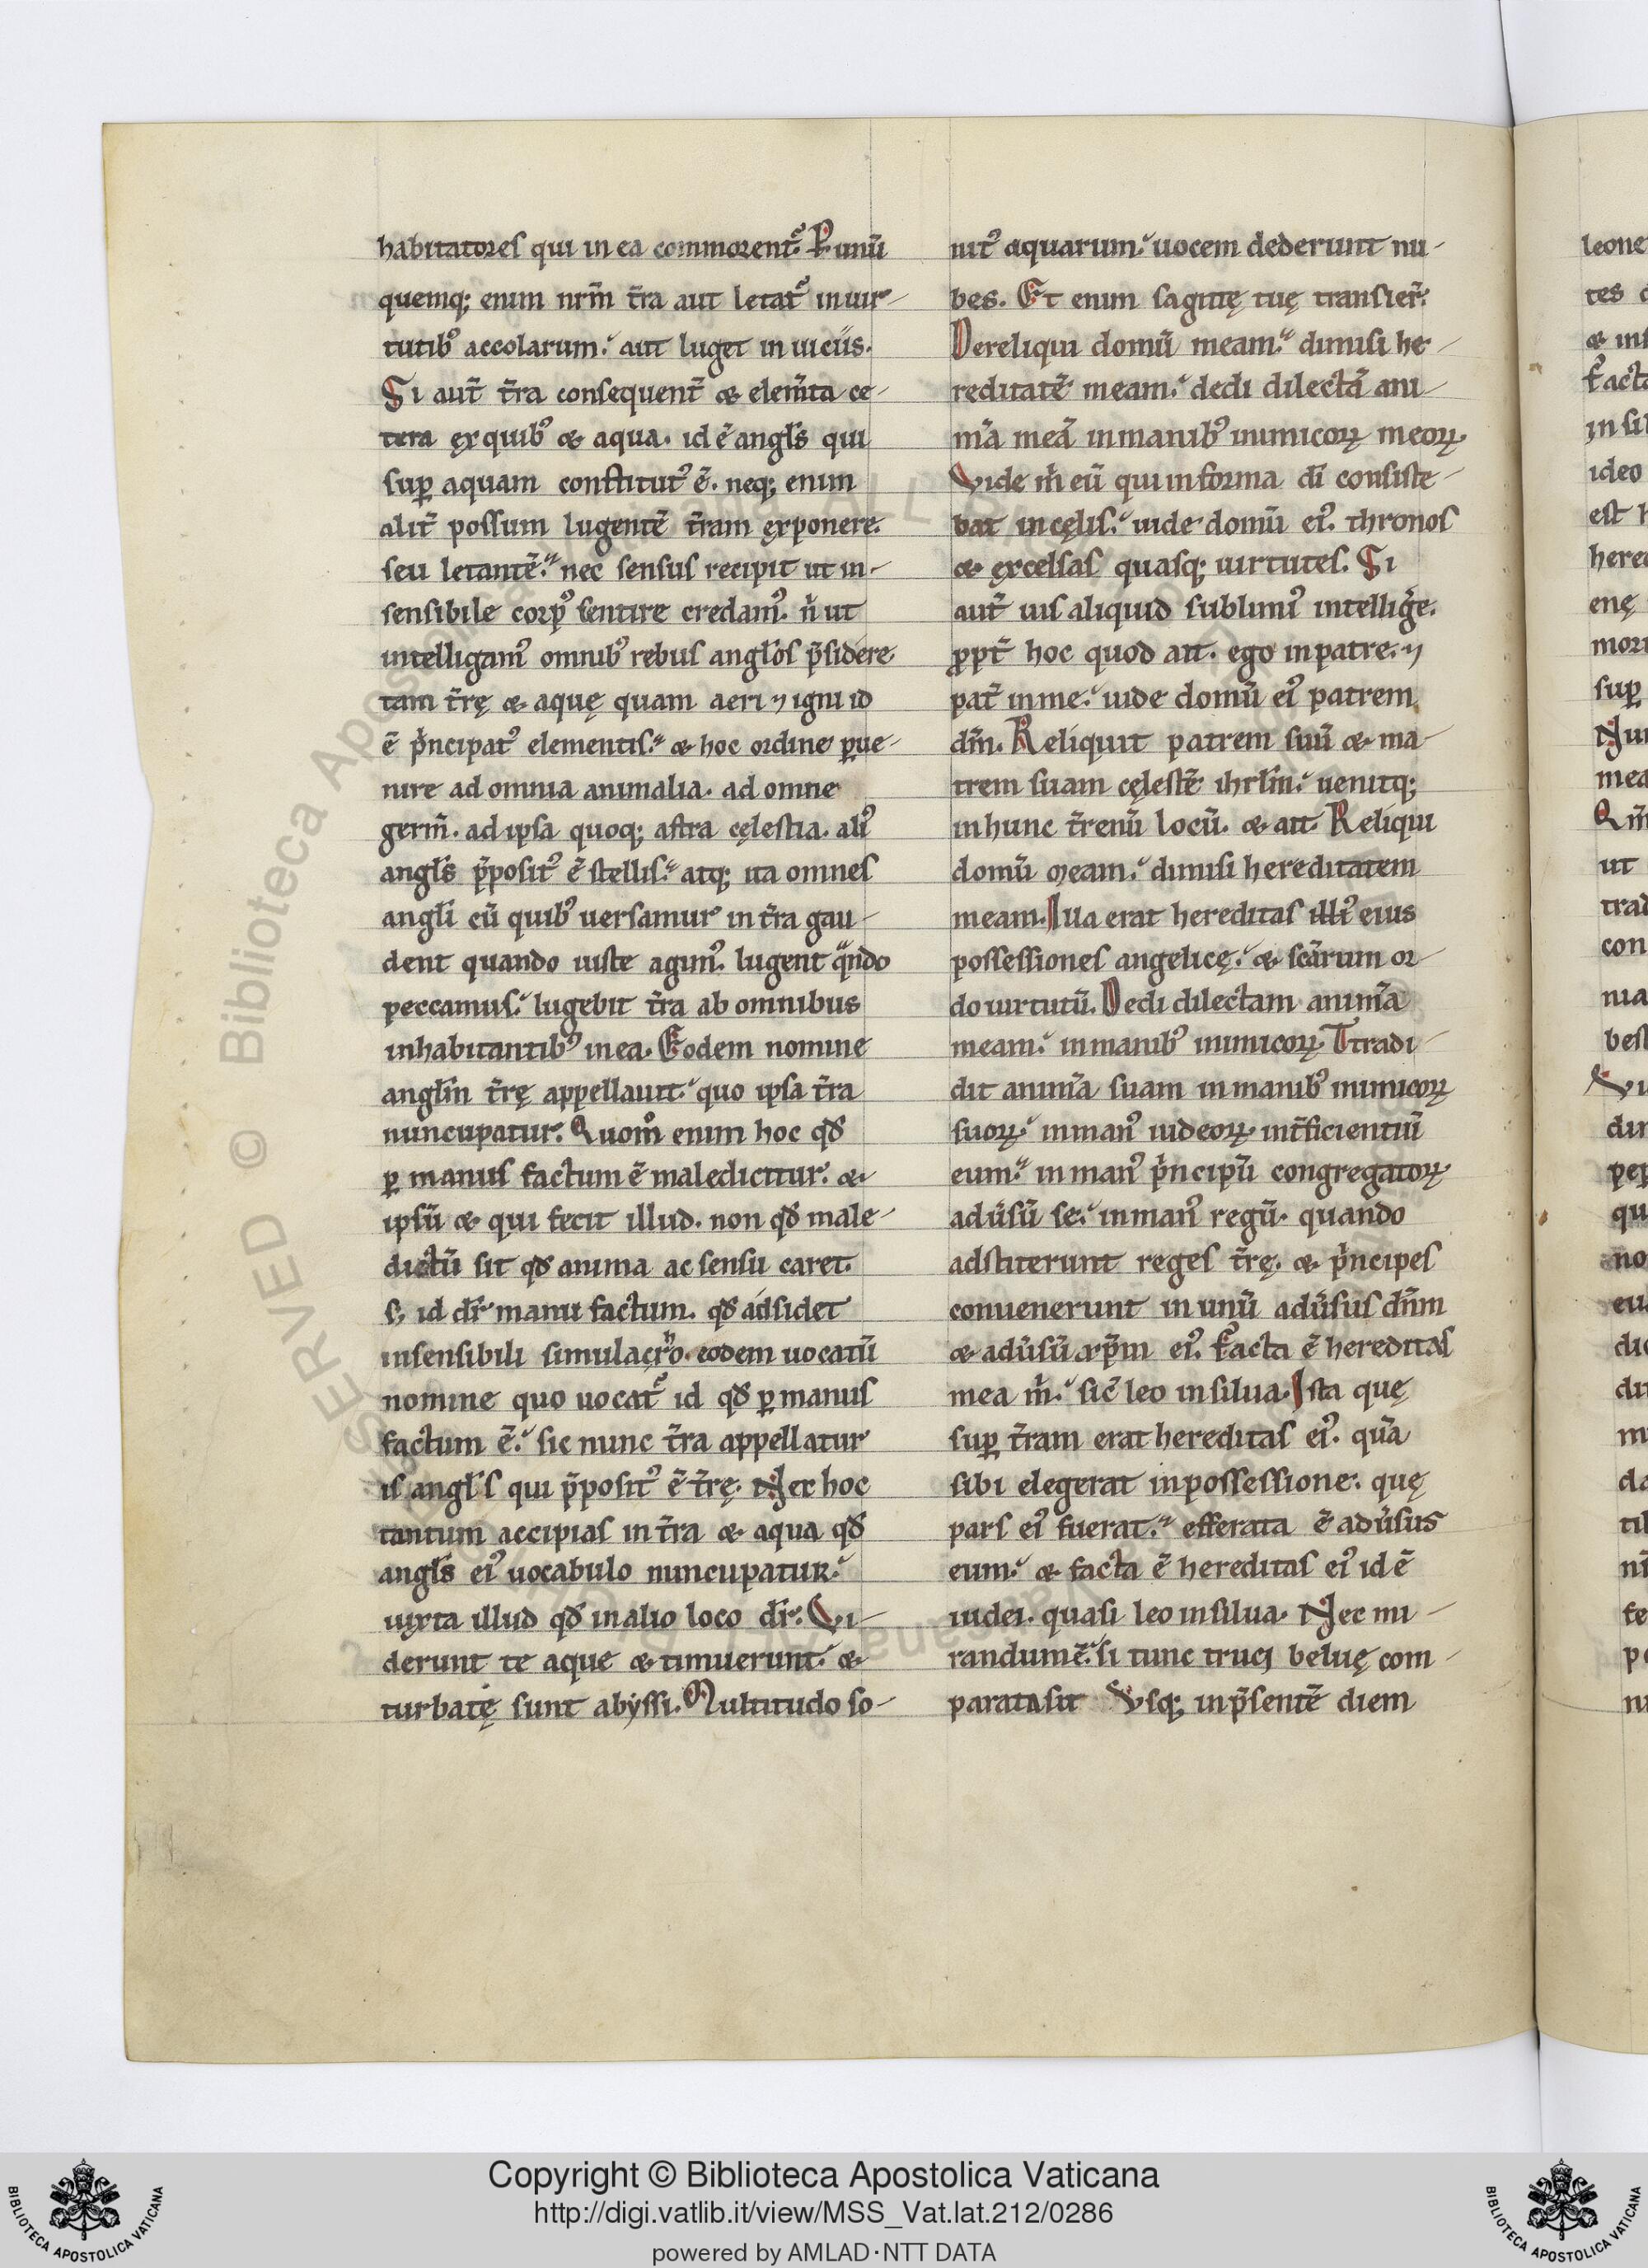 habitatores qui in ea commorent᷒. P. unū
quemq; enim nr̄m t̄ra aut letat᷒ in uir-
tutibꝰ accolarum. aut luget in uiciis.
Si aut̄ t̄ra consequent̄ & elem̄ta ce-
tera ęx quibꝰ & aqua. id ē angl̄s qui
suꝑ aquam constitutꝰ ē. neq; enim
alit̄ possum lugentē t̄ram ęxponere.
seu letantē. nec sensus recipit ut in-
sensibile corpꝰ sentire credamꝰ. n̄ ut
intelligamꝰ omnibꝰ rebus angl̄os p̄sidere
tam t̄rę & aquę quam aeri ⁊ igni id
ē p̄ncipatꝰ elementis. & hoc ordine ꝑue-
nire ad omnia animalia. ad omne
germ̄. ad ipsa quoq; astra cęlestia. aliꝰ
angl̄s p̄positꝰ ē stellis. atq; ita omnes
angl̄i cū quibꝰ uersamur in t̄ra gau-
dent quando iuste agimꝰ. lugent qͣndo
peccamus. lugebit t̄ra ab omnibus
inhabitantibꝰ in ea. Eodem nomine
angl̄m t̄rę appellauit. quo ipsa t̄ra
nuncupatur. Quom̊ enim hoc qđ
ꝑ manus factum ē maledicitur. &
ipsū & qui fecit illud. non qđ male-
dictū sit qđ anima ac sensu caret.
s; id dr̄ manu factum. qđ adsidet
insensibili simulacro. eodem uocatū
nomine quo uocat᷒ id qđ ꝑ manus
factum ē. sic nunc t̄ra appellatur
is angl̄s qui p̄positꝰ ē t̄rę. Nec hoc
tantum accipias in t̄ra & aqua qđ
angl̄s eiꝰ uocabulo nuncupatur.
iuxta illud qđ in alio loco dr̄. Ui-
derunt te aque & timuerunt. &
turbatę sunt abyssi. Multitudo so-
nitꝰ aquarum. uocem dederunt nu-
bes. Et enim sagittę tuę transier̄.
Dereliqui domū meam. dimisi he-
reditatē meam. dedi dilectā ani-
m̄a meā in manibꝰ inimicoꝝ meoꝝ.
Vide m̄ eū qui in forma dī consiste-
bat in cęlis. uide domū eiꝰ. thronos
& ęxcelsas quasq; uirtutes. Si
aut̄ uis aliquid sublimiꝰ intelliḡe.
ꝓpt̄ hoc quod ait. ego in patre. ⁊
pat̄ in me. uide domū eiꝰ patrem
dm̄. Reliquit patrem suū & ma-
trem suam cęlestē ihrl̄m. uenitq;
in hunc t̄renū locū. & ait. Reliqui
domū meam. dimisi hereditatem
meam. Iua erat hereditas illiꝰ eius
possessiones angelicę. & sc̄arum or-
do uirtutū. Dedi dilectam anim̄a
meam. in manibꝰ inimicoꝝ. Ttradi-
dit anim̄a suam in manibꝰ inimicoꝝ
suoꝝ. in manꝰ iudeoꝝ. int̄ficientiū
eum. in manꝰ p̄ncipū congregatoꝝ
adu̾sū se. in manꝰ regū. quando
adstiterunt reges t̄rę. & p̄ncipes
conuenerunt in unū adu̾sus dn̄m
& adu̾sū xp̄m eiꝰ. Facta ē hereditas
mea m̄. sic̄ leo in silua. Ista quę
suꝑ t̄ram erat hereditas eiꝰ. qūa
sibi elegerat in possessione. quę
pars eiꝰ fuerat. efferata ē adu̾sus
eum. & facta ē hereditas eiꝰ id ē
iudei. quasi leo in silua. Nec mi-
randum ē. si tunc truci beluę com-
parata sit Vsq; in p̄sentē diem
leone
tes
& inf
fact
in sil
ideo
est h
here
enę
mori
suꝑ
Nun
mea
Qm̄
ut
trad
con
nia
best
Vi
dim
peꝑ
qu
no
eu
dic
du
m
da
til
nī
fe
po
ni
© Biblioteca Aposto
SERVED
Copyright © Biblioteca Apostolica Vaticana
http://digi.vatlib.it/view/MSS_Vat.lat.212/0286
powered by AMLAD·NTT DATA
BIBLIOTECA APOSTOLICA VATICANA
BIBLIOTECA APOSTOLICA VATICANA